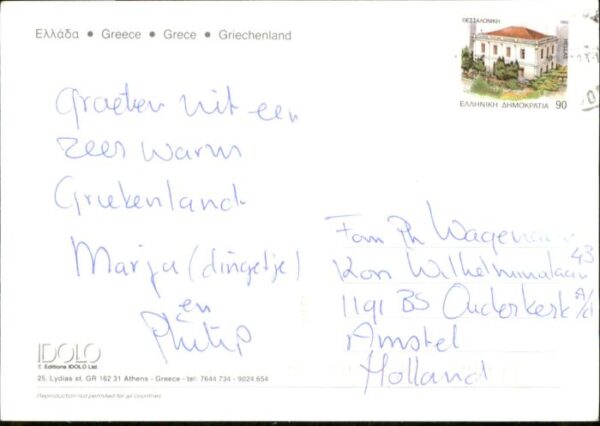 Ελλάδα • Greece • Grece • Griechenland
ΘΕΣΣΑΛΟΝΙΚΗ
ΕΛΛΑΣ
ΕΛΛΗΝΙΚΗ ΔΗΜΟΚΡΑΤΙΑ 90
Groeten uit een
zeer warm
Griekenland
Marja (dingetje)
en
Philip
Fam Ph Wagenaar
Kon Wilhelminalaan 43
1191 BS Ouderkerk a/d
Amstel
Holland
IDOLO
© Editions IDOLO Ltd.
25, Lydias st. GR 162 31 Athens - Greece - tel: 7644.734 - 9024.654
Reproduction not permitted for all countries.